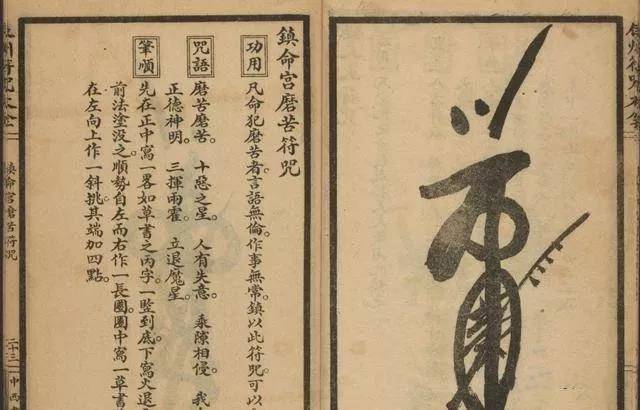 鎮命宮磨苦符咒
功用
凡命犯磨苦者。言語無倫。作事無常。鎮以此符咒可以
咒語
磨苦磨苦。 十惡之星。 人有失意。 乘隙相侵。 我
正德神明。 三揮兩霍。 立退魔星。
筆順
先在正中寫一畧如草書之丙字。一竪到底。下寫火退
前法塗沒之。順勢自左而右作一長圈。圈中寫一草書
在左向上作一斜挑。其端加四點。
鎮命宮磨苦符咒
三十三
中西